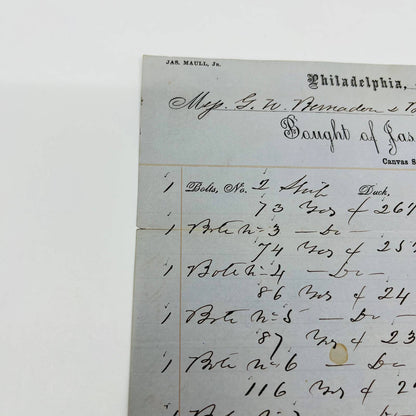 JAS. MAULL, Jr.
Philadelphia,
Mess. G. W. Bernadou &
Bought of Jas
Canvas S
1 Bolts, No. 2 Duck,
73 Yds @ 26
1 Bolt No 3 — Do —
74 Yds @ 25
1 Bolt No 4 — Do —
86 Yds @ 24
1 Bolt No 5 — Do —
87 Yds @ 23
1 Bolt No 6 — Do
116 Yds @ 2
1